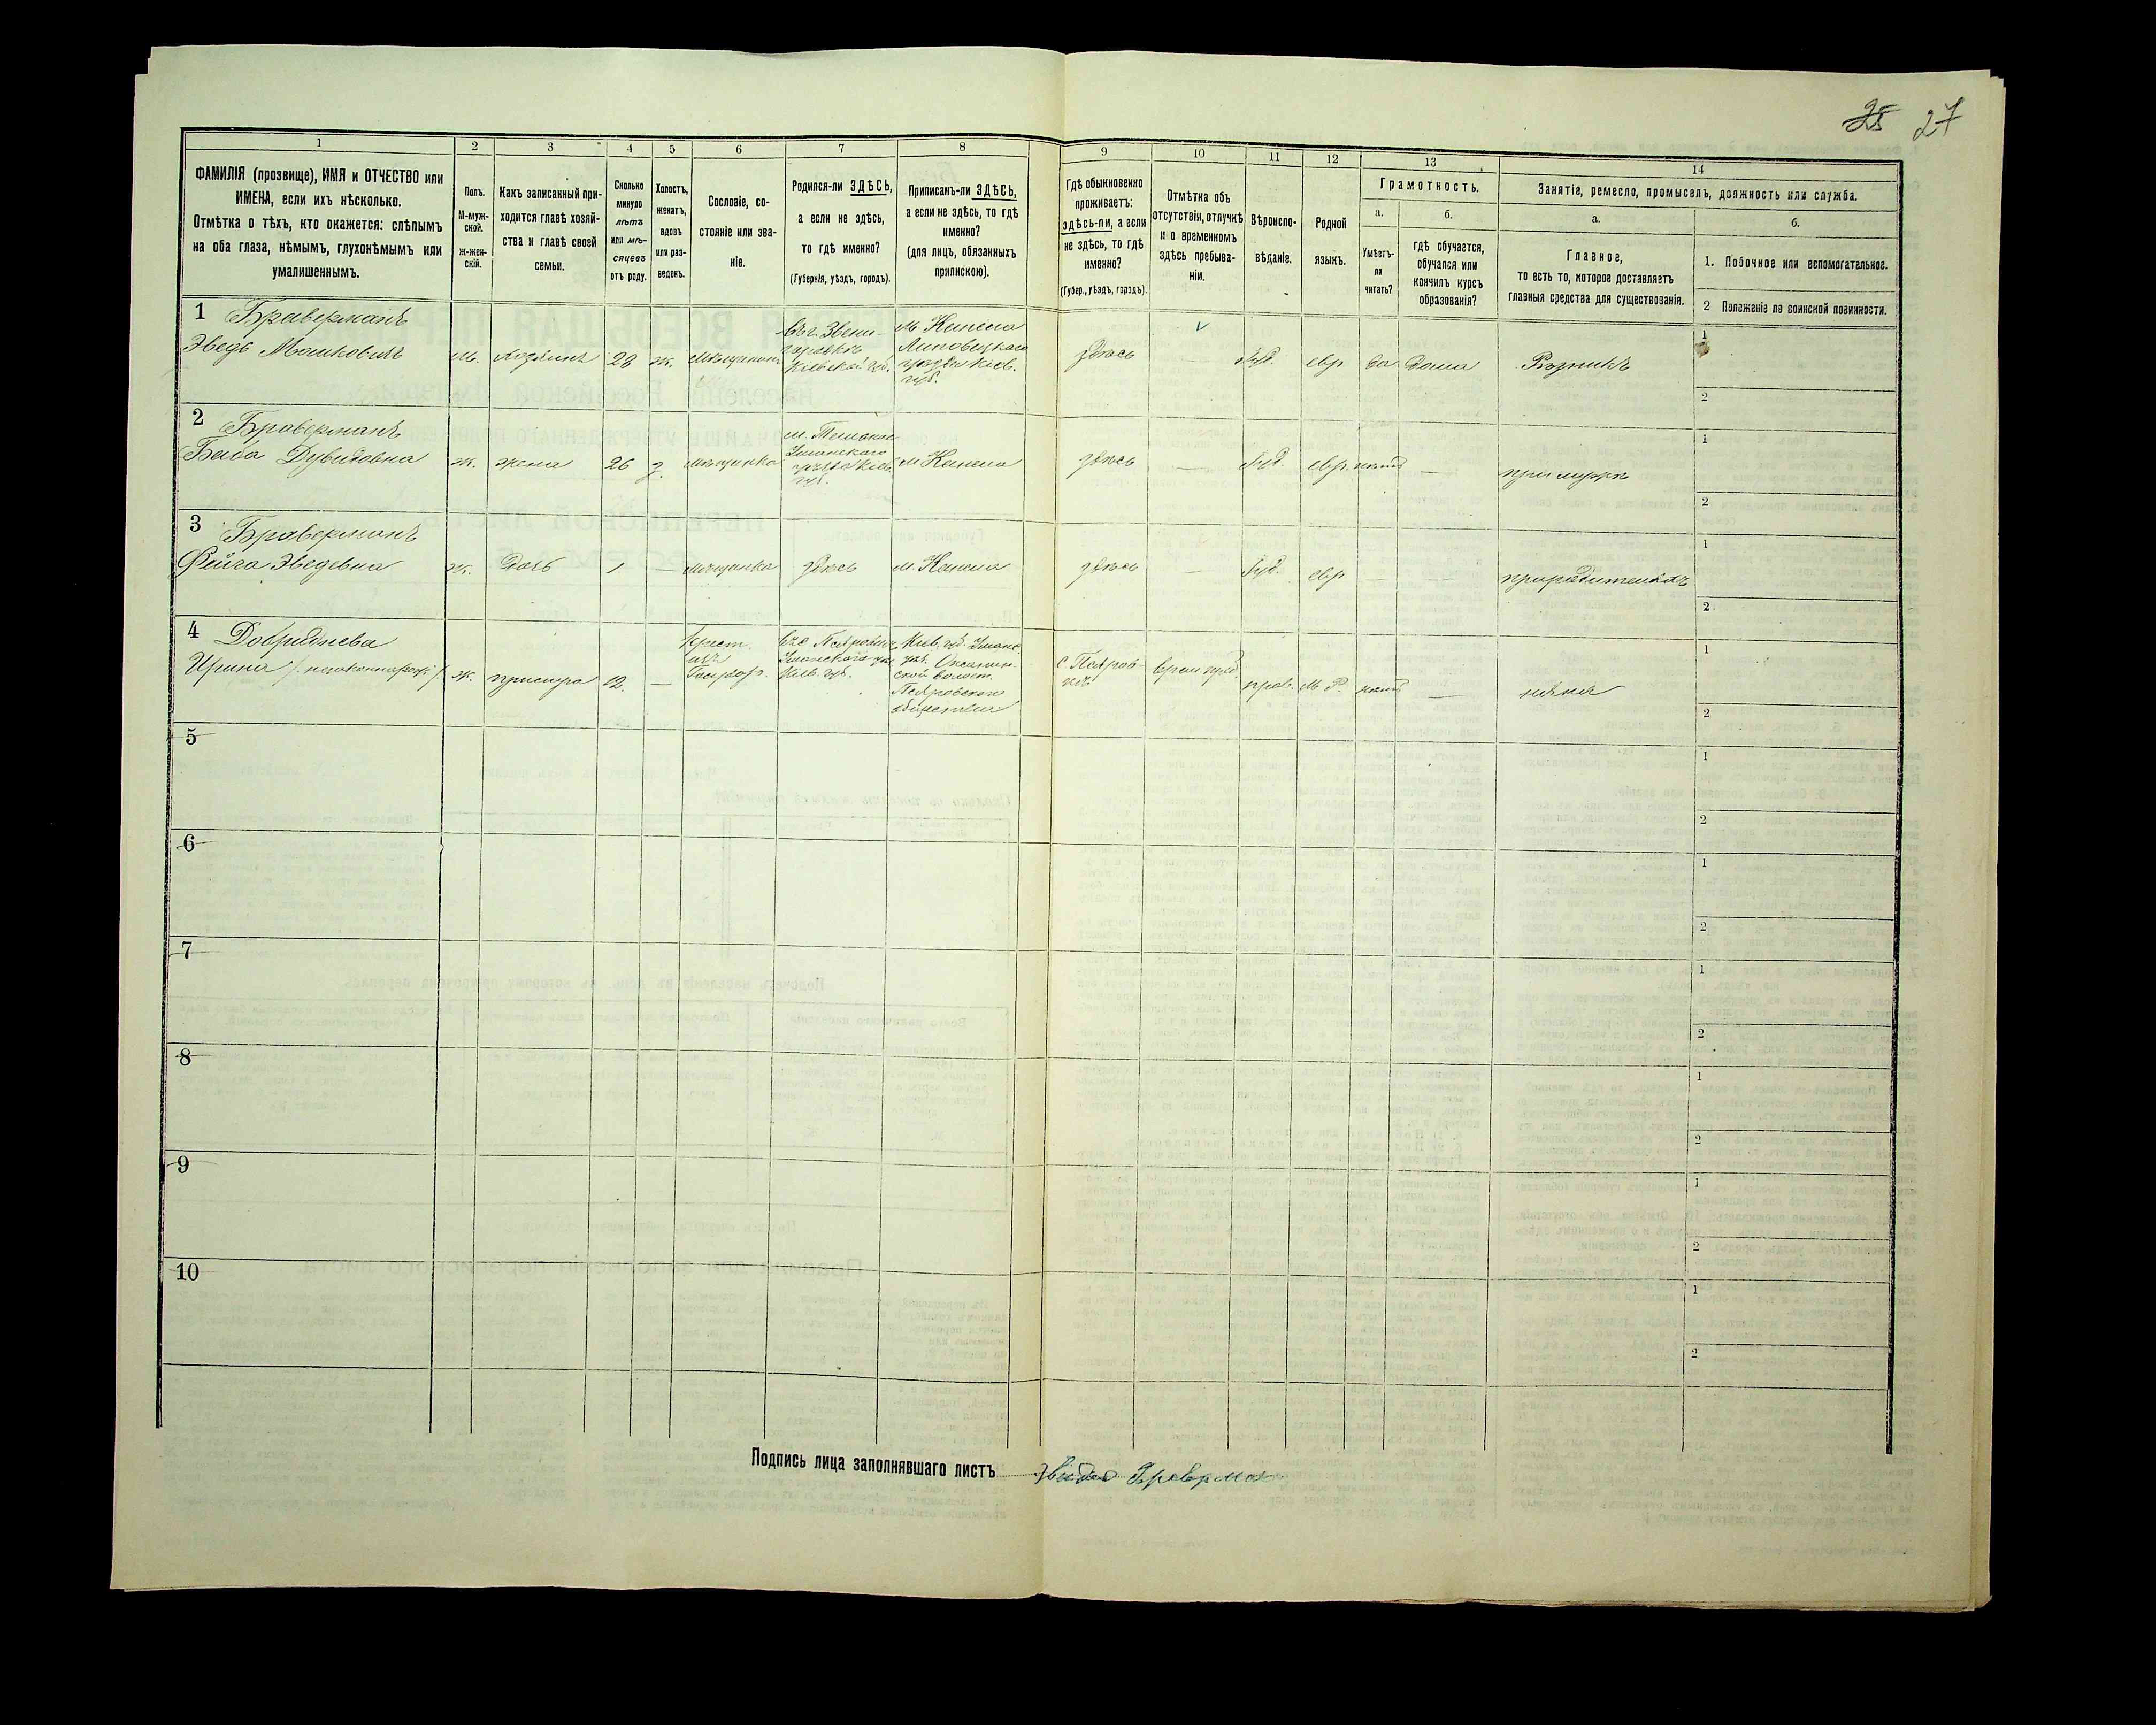 25 27
1 2 3 4 5 6 7 8 9 10 11 12 13 14
ФАМИЛІЯ (прозвище), ИМЯ и ОТЧЕСТВО или
ИМЕНА, если ихъ нѣсколько.
Отмѣтка о тѣхъ, кто окажется: слѣпымъ
на оба глаза, нѣмымъ, глухонѣмымъ или
умалишеннымъ.
Полъ.
М-муж-
ской.
ж-жен-
скій.
Какъ записанный при-
ходится главѣ хозяй-
ства и главѣ своей
семьи.
Сколько
минуло
лѣтъ
или мѣ-
сяцевъ
отъ роду.
Холостъ,
женатъ,
вдовъ
или раз-
веденъ.
Сословіе, со-
стояніе или зва-
ніе.
Родился-ли ЗДѢСЬ,
а если не здѣсь,
то гдѣ именно?
(Губернія, уѣздъ, городъ).
Приписанъ-ли ЗДѢСЬ,
а если не здѣсь, то гдѣ
именно?
(для лицъ, обязанныхъ
припискою).
Гдѣ обыкновенно
проживаетъ:
здѣсь-ли, а если
не здѣсь, то гдѣ
именно?
(Губер., уѣздъ, городъ).
Отмѣтка объ
отсутствіи, отлучкѣ
и о временномъ
здѣсь пребыва-
ніи.
Вѣроиспо-
вѣданіе.
Родной
языкъ.
Грамотность.
а.
Умѣетъ-
ли
читать?
б.
гдѣ обучается,
обучался или
кончилъ курсъ
образованія?
Занятіе, ремесло, промыселъ, должность или служба.
а.
Главное,
то есть то, которое доставляетъ
главныя средства для существованія.
б.
1. Побочное или вспомогательное.
2 Положеніе по воинской повинности.
1 Браверманъ
Зведь Мошковичъ
м. хозяинъ 28 ж. мѣщанинъ
въ г. Звени-
городкѣ
Кіевской губ.
м Кинела
Липовецкаго
уѣзда Кіев.
губ.
здѣсь — Іуд. евр да дома
1
2
2 Браверманъ
Бейба Дувидовна
ж. жена 26 з. мѣщанка
Уманскаго
уѣзда Кіев.
губ.
м Кинела
здѣсь — Іуд. евр. нѣтъ —
при мужѣ
1
2
3 Браверманъ
Фейга Зведевна
ж. дочь 1 — мѣщанка здѣсь м. Кинела
здѣсь — Іуд. евр — —
при родителяхъ
1
2
4
Ирина
ж. прислуга 12. —
Крест.
изъ
Уманскаго уѣз.
Кіев. губ.
Кіев. губ. Уманс.
уѣз. Оксанин-
ской волост.
общества
прав. М Р. нѣтъ —
няня
1
2
5
1
2
6
1
2
7
1
2
8
1
2
9
1
2
10
1
2
Подпись лица заполнявшаго листъ